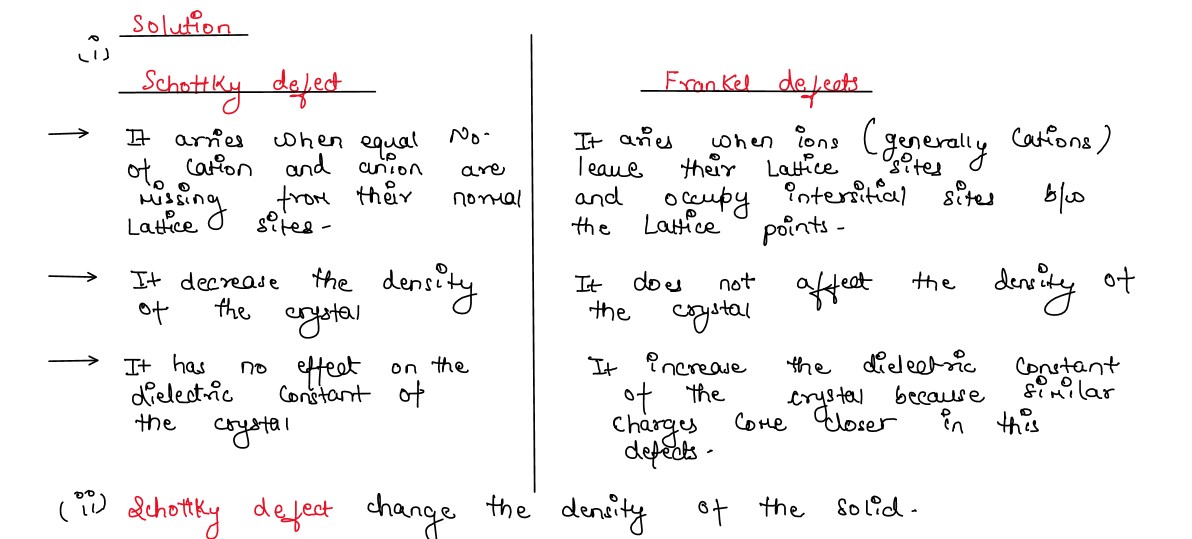 Solution
(i)
Schottky defect
→ It arries when equal No.
of cation and anion are
missing from their normal
Lattice sites.
→ It decrease the density
of the crystal
→ It has no effect on the
dielectric constant of
the crystal
Frankel defects
It aries when ions (generally cations)
leave their Lattice sites
and occupy intersitial sites b/w
the Lattice points.
It does not affect the density of
the crystal
It increase the dielectric constant
of the crystal because similar
charges come closer in this
defects.
(ii) Schottky defect change the density of the solid.